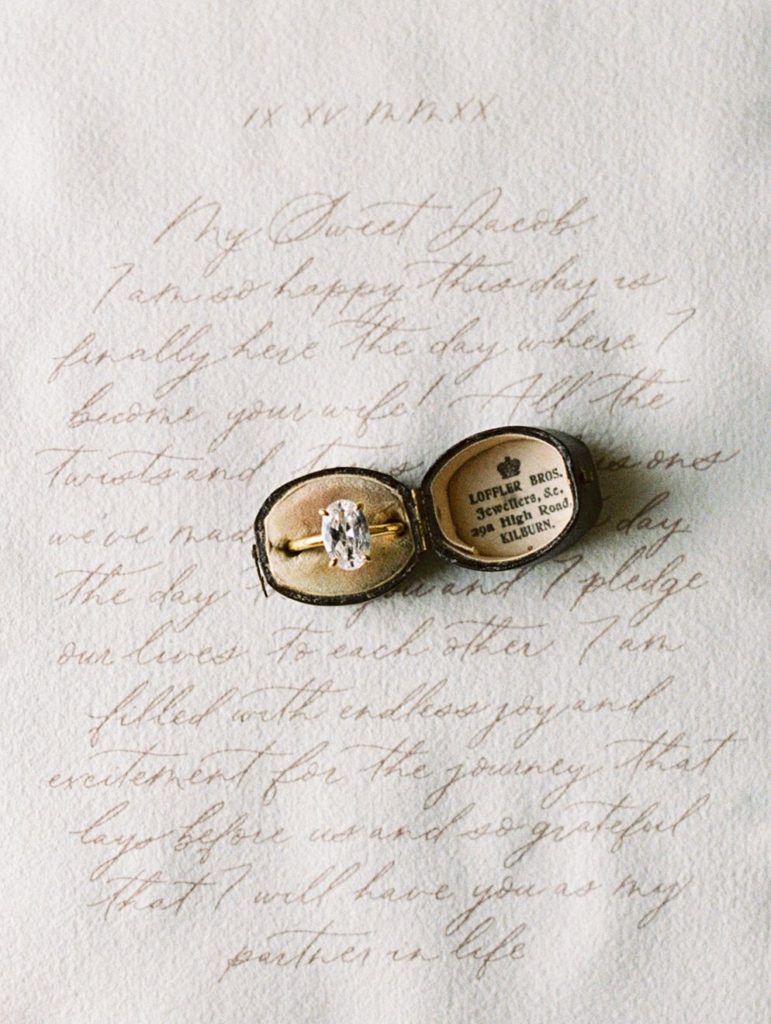 IX XV MMXX
My Sweet Jacob,
I am so happy this day is
finally here the day where I
become your wife! All the
twists and
we've mad day
the day you and I pledge
our lives to each other I am
filled with endless joy and
excitement for the journey that
lays before us and so grateful
that I will have you as my
partner in life
LOFFLER BROS.
Jewellers, &c.
29a High Road,
KILBURN.